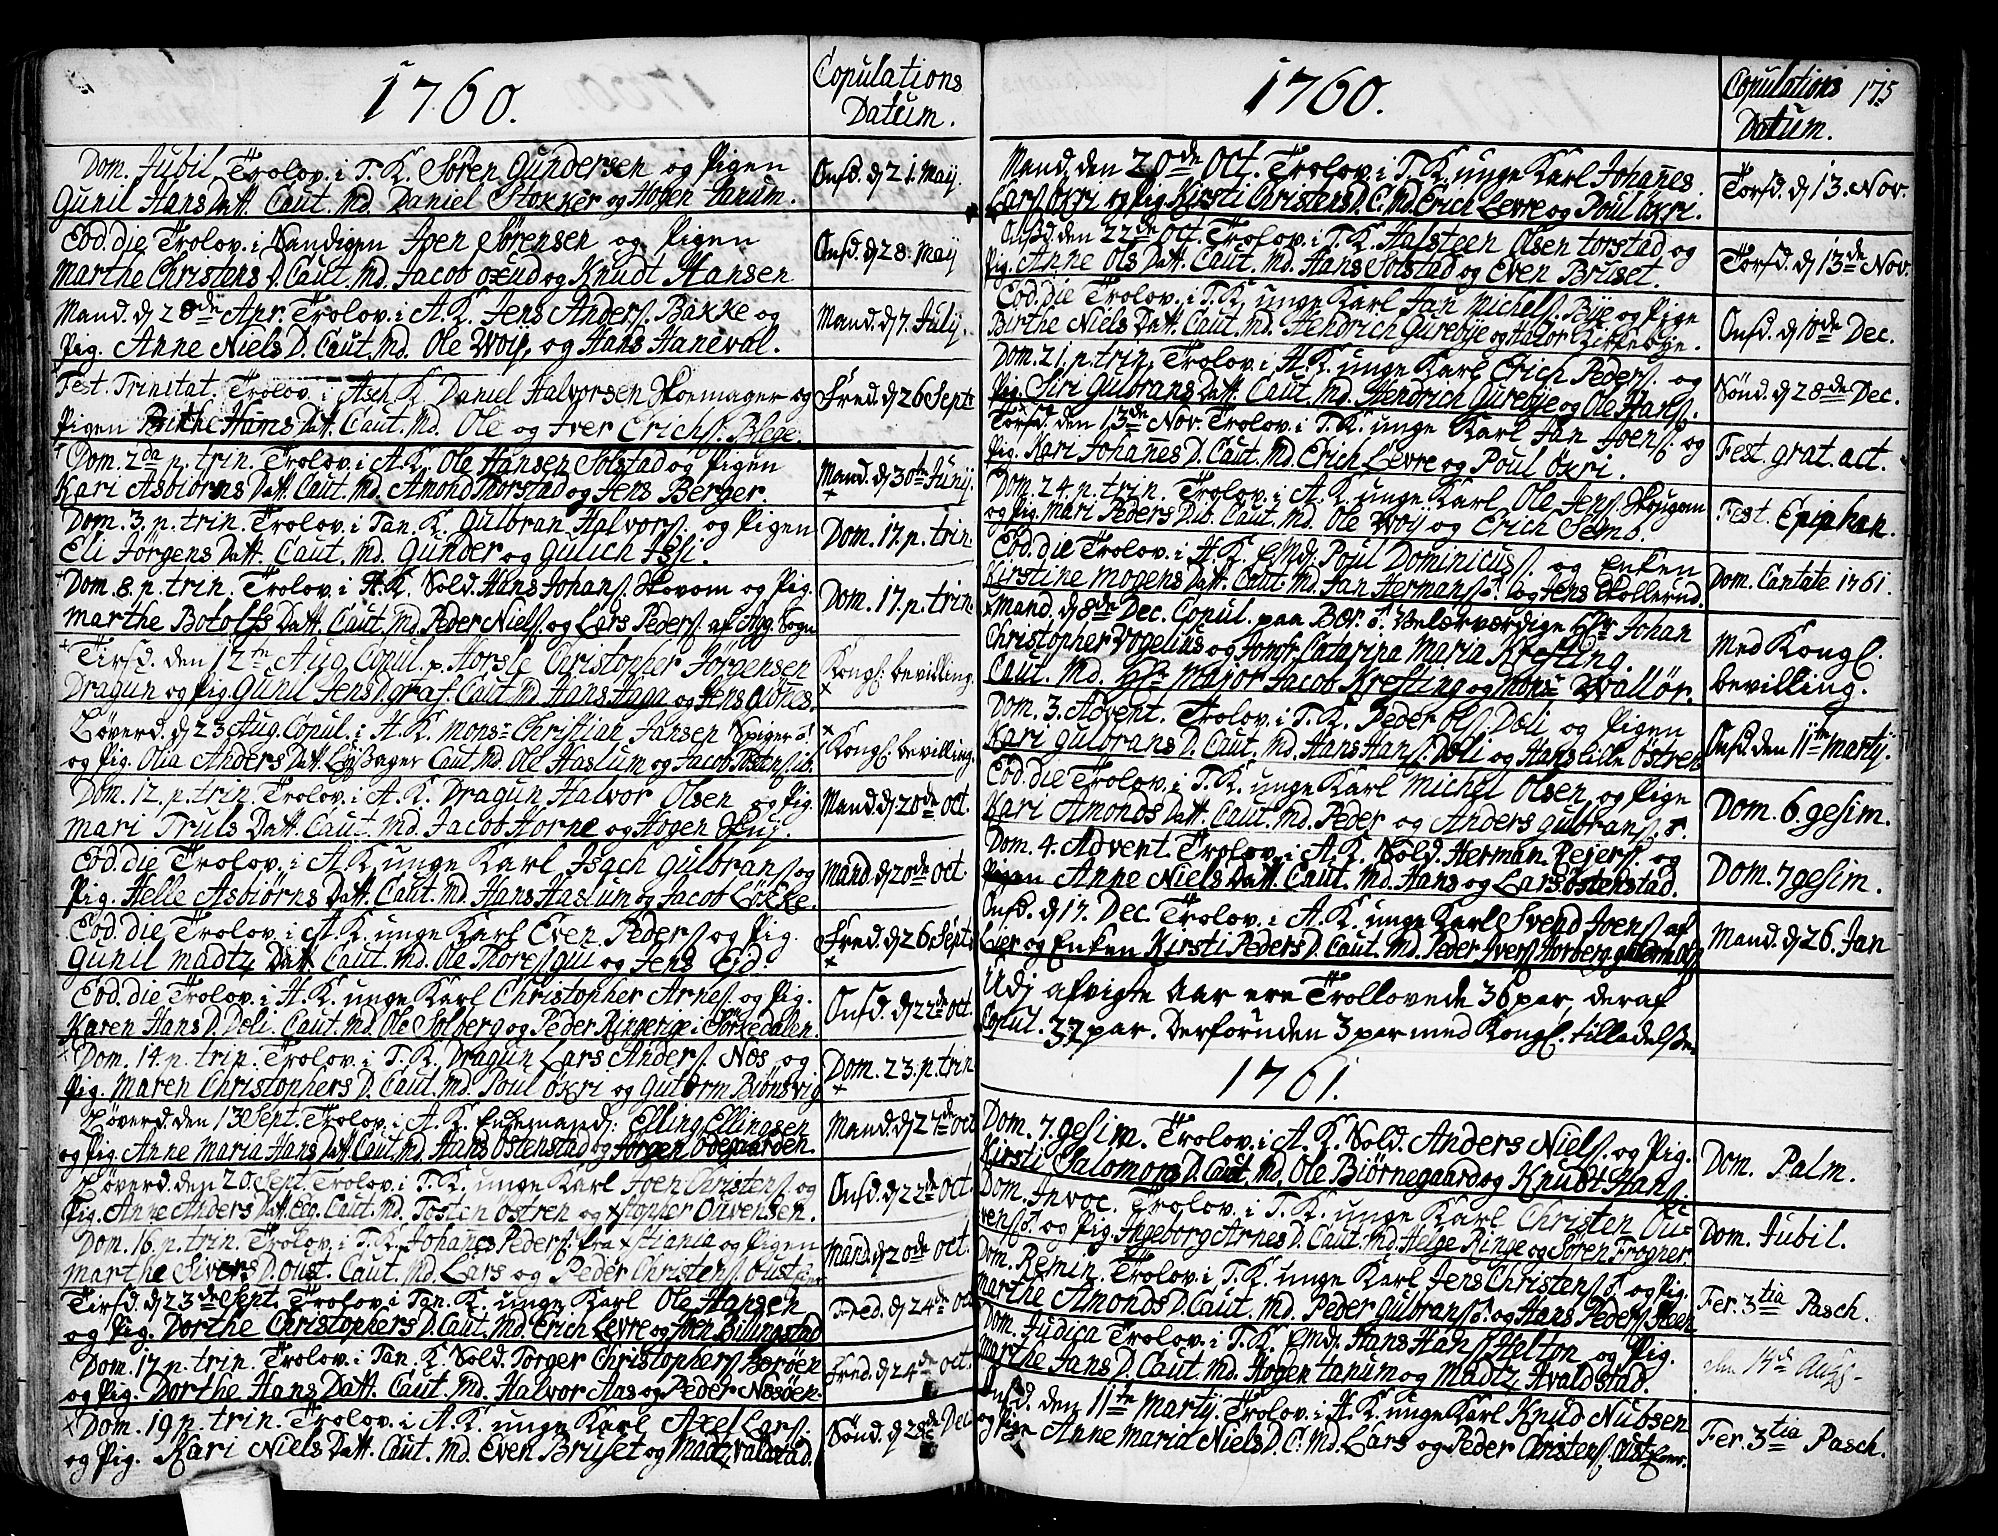 1760.
Copulations
Datum.
Dom. Jubil. Trolov. i T. K. Sören Gundersen og Pigen
Gunil Hans Datt. Caut. Md. Daniel Stokker og Hogen Tanum.
Onsd. d 21. Maij.
Eod. die Trolov. i Sandigen Joen Sörensen og Pigen
Marthe Christens D. Caut. Md. Jacob Oxud og Knudt Hansen
Onsd. d 28. Maij
Mand. d 28de Apr. Trolov. i A. K. Jens Anders. Bakke og
Pig. Anne Niels D. Caut. Md. Ole Woij, og Hans Haneval.
Mand. d 7. Julij.
Fest. Trinitat. Trolov. i Asch. K. Daniel Halvorsen Skoemager og
Pigen Birthe Hans Datt. Caut. Md. Ole og Iver Erichs. Blege.
Fred. d 26 Sept.
Dom. 2da p. trin. Trolov. i A. K. Ole Hansen Solstad og Pigen
Kari Asbiörns Datt. Caut. Md. Amond Thorstad og Jens Berger.
Mand. d 30te Junij.
Dom. 3. p. trin. Trolov. i Tan. K. Gulbran Halvors. og Pigen
Eli Jörgens Datt. Caut. Md. Gunder og Gulich Isli.
Dom. 17. p. trin.
Dom. 8. p. trin. Trolov. i A. K. Sold. Hans Johans. Skovom og Pig.
Marthe Botolfs Datt. Caut. Md. Peder Niels. og Lars Peders. af Agg. Sogn
Dom. 17. p. trin.
Tirsd. den 12te Aug. Copul. p. Horsle Christopher Jörgensen
Dragun og Pig. Gunil Jens D. graf. Caut. Md. Hans Haga og Jens
Kongl. bevilling.
Löverd. d 23 Aug. Copul. i A. K. Mons. Christian Jansen Spiger
og Pig. Olia Anders Datt. Caut. Md. Ole Haslum og Jacob
Kongl. bevilling.
Dom. 12. p. trin. Trolov. i A. K. Dragun Halvor Olsen og Pig.
Mari Truls Datt. Caut. Md. Jacob Horne og Hogen Skuj.
Mand. d 20de Oct.
Eod. die Trolov. i A. K. unge Karl Isach Gulbrans. og
Pig. Helle Asbiörns Datt. Caut. Md. Hans Haslum og Jacob Lökke.
Mand. d 20de Oct.
Eod. die Trolov. i A. K. unge Karl Even Peders. og Pig.
Gunil Madtz Datt. Caut. Md. Ole Thores. Gui og Jens Eid.
Fred. d 26 Sept.
Eod. die Trolov. i A. K. unge Karl Christopher Arnes. og Pig.
Karen Hans D. Deli. Caut. Md. Ole Solberg og Peder Ringerige i Sörkedalen.
Onsd. d 22de Oct.
Dom. 14. p. trin. Trolov. i T. K. Dragun Lars Anders. Nös og
Pig. Maren Christophers D. Caut. Md. Poul Økri og Gutorm Biönsvig
Dom. 23. p. trin
Löverd. den 13 Sept. Trolov. i A. K. Enkemand: Elling Ellingsen
og Pig. Anne Maria Hans Datt. Caut. Md. Hans Ostenstad og Jörgen Odegaarden.
Mand. d 27de Oct
Löverd. den 20. Sept. Trolov. i T. K. unge Karl Joen Christens. og
Pig. Anne Anders Datt. Caut. Md. Tosten Östren og Xstopher Ouvensen.
Onsd. d 22de Oct.
Dom. 16. p. trin. Trolov. i T. K. Johanes Peders. fra Xstiania og Pigen
Marthe Sivers D. Oust. Caut. Md. Lars og Peder Christens. Oust
Mand. d 20de Oct.
Tirsd. d 23de Sept. Trolov. i Tan. K. unge Karl Ole Hansen
og Pig. Dorthe Christophers D. Caut. Md. Erich Levre og Joen Bilingstad
Fred. d 24de Oct
Dom. 17. p. trin. Trolov. i Tan. K. Sold. Torger Christophers. Boröen
og Pig. Dorthe Hans Datt. Caut. Md. Halvor Aas og Peder Nesöen.
Fred. d 24de Oct.
Dom. 19 p. trin. Trolov. i A. K. unge Karl Axel Lars.
og Pig. Kari Niels Datt. Caut. Md. Even Bruset og Madtz Valstad.
Sönd. d 28de Dec
1760.
Copulations 175
Datum.
Mand. den 20de Oct. Trolov. i T. K. unge Karl Johanes
Lars. Økri og Pig. Kirsti Christens D. C. Md. Erich Levre og Poul Økri.
Torsd. d 13. Nov.
Onsd. den 22de Oct. Trolov. i T. K. Halsteen Olsen Torstad og
Pig. Anne Ols Datt. Caut. Md. Hans Solstad og Even Bruset.
Torsd. d 13de Nov.
Eod. die Trolov. i T. K. unge Karl Jan Michels. Bye og Pige
Birthe Niels Datt. Caut. Md. Hendrich Gurebye og Halvor Kirkebye.
Onsd. d 10de Dec.
Dom. 21. p. trin. Trolov. i A. K. unge Karl Erich Peders. og
Pig. Siri Gulbrans Datt. Caut. Md. Hendrich Gurebye og Ole Hans.
Sönd. d 28de Dec.
Torsd. den 13de Nov. Trolov. i T. K. unge Karl Jan Joens. og
Pig. Kari Johanes D. Caut. Md. Erich Levre og Poul Økri.
Fest. grat. act.
Dom. 24. p. trin. Trolov. i A. K. unge Karl Ole Jens. Skougom
og Pig. Mari Peders D. ib. Caut. Md. Ole Woij og Erich Semb.
Fest. Epiphan.
Eod. die Trolov. i A. K. Emd. Poul Dominicus. og Enken
Kirstine Mogens Datt. Caut. Md. Jan Hermans. og Jens Skollerud.
Dom. Cantate 1761.
Mand. d 8de Dec. Copul. paa Velærværdige Hr. Johan
Christopher Vogelius og Jomfr. Catarina Maria Krefting.
Caut. Md. Hr. Major Jacob Krefting og Monsr. Wallör.
Med Kongl.
bevilling.
Dom. 3. Advent. Trolov. i T. K. Peder Ols. Deli og Pigen
Kari Gulbrans D. Caut. Md. Hans Hans. Deli og Hans Lille Östren
Onsd. den 11te Martij.
Eod. die Trolov. i T. K. unge Karl Michel Olsen og Pige
Kari Amonds Datt. Caut. Md. Peder og Anders Gulbrans.
Dom. 6 gesim.
Dom. 4. Advent Trolov. i A. K. Sold. Herman Pejers. og
Pigen Anne Niels Datt. Caut. Md. Hans og Lars Östenstad.
Dom. 7 gesim.
Onsd. d 17. Dec. Trolov. i A. K. unge Karl Svend Joens. af
Lier og Enken Kirsti Peders D. Caut. Md. Peder Ivers. Horberg
Mand. d 26. Jan
Udj afvigte Aar ere Trollovede 36 par, deraf
Copul. 37 par. Derforuden 3 par med Kongl. tilladelsse
1761.
Dom. 7 gesim. Trolov. i A. K. Sold. Anders Niels. og Pig.
Kirsti Salomons D. Caut. Md. Ole Biörnegaard og Knudt Hans.
Dom. Palm.
Dom. Invoc. Trolov. i T. K. unge Karl Christen Ou-
vens. og Pig. Ingeborg Arnes D. Caut. Md. Helge Ringe og Sören Frogner.
Dom. Jubil.
Dom. Remin. Trolov. i T. K. unge Karl Jens Christens. og Pig.
Marthe Amonds D. Caut. Md. Peder Gulbrans. og Hans Peders. Steen
Fer. 3tia Pasch.
Dom. Judica Trolov. i T. K. Emd. Hans Hans. Helton og Pig.
Marthe Jans D. Caut. Md. Hogen Tanum og Madtz Hvaldstad.
den 14de Aug.
Onsd. den 11te Martij. Trolov. i A. K. unge Karl Knud Nubsen
og Pige Anne Maria Niels D. C. Md. Lars og Peder Christens. Oust
Fer. 3tia Pasch.